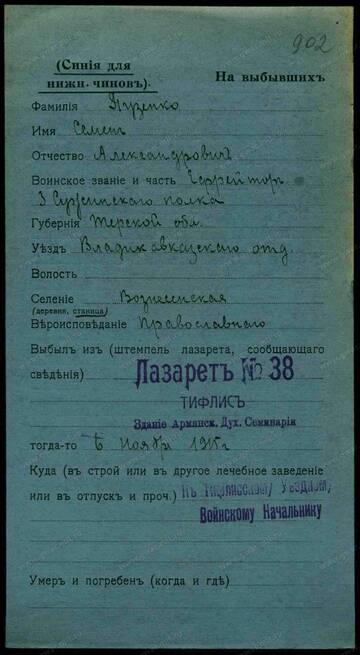 902
(Синія для
нижн. чиновъ).
На выбывшихъ
Фамилія Пузенко
Имя Семенъ
Отчество Александровичъ
Воинское званіе и часть Ефрейтор
3 полка
Губернія Терской обл.
Уѣздъ Владикавказскаго отд.
Волость
Селеніе Вознесенская
(деревня, станица)
Вѣроисповѣданіе Православнаго
Выбылъ изъ (штемпель лазарета, сообщающаго
свѣдѣнія)
Лазаретъ № 38
ТИФЛИСЪ
Зданіе Армянск. Дух. Семинаріи
тогда-то 6 Ноября 1915 г
Куда (въ строй или въ другое лечебное заведеніе
или въ отпускъ и проч.) Къ Тифлисскому Уѣздному
Воинскому Начальнику
Умеръ и погребенъ (когда и гдѣ)